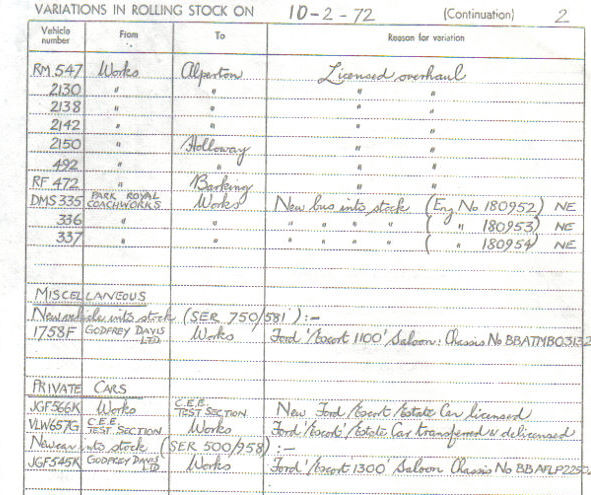 VARIATIONS IN ROLLING STOCK ON 10-2-72 (Continuation) 2
Vehicle number From To Reason for variation
RM 547 Works Alperton Licensed overhaul
2130 " " " "
2138 " " " "
2142 " " " "
2150 " Holloway " "
492 " " " "
RF 472 " Barking " "
DMS 335 PARK ROYAL COACHWORKS Works New bus into stock (Eng No 180952) NE
336 " " " " " " ( " 180953) NE
337 " " " " " " ( " 180954) NE
MISCELLANEOUS
New vehicle into stock (SER 750/581):-
1758F GODFREY DAVIS LTD Works Ford 'Escort 1100' Saloon: Chassis No BBATMB03132
PRIVATE CARS
JGF566K Works C.E.E. TEST SECTION New Ford Escort Estate Car licensed
VLW657G C.E.E. TEST SECTION Works Ford 'Escort' Estate Car transferred & delicensed
New car into stock (SER 500/958):-
JGF545K GODFREY DAVIS LTD Works Ford 'Escort 1300' Saloon Chassis No